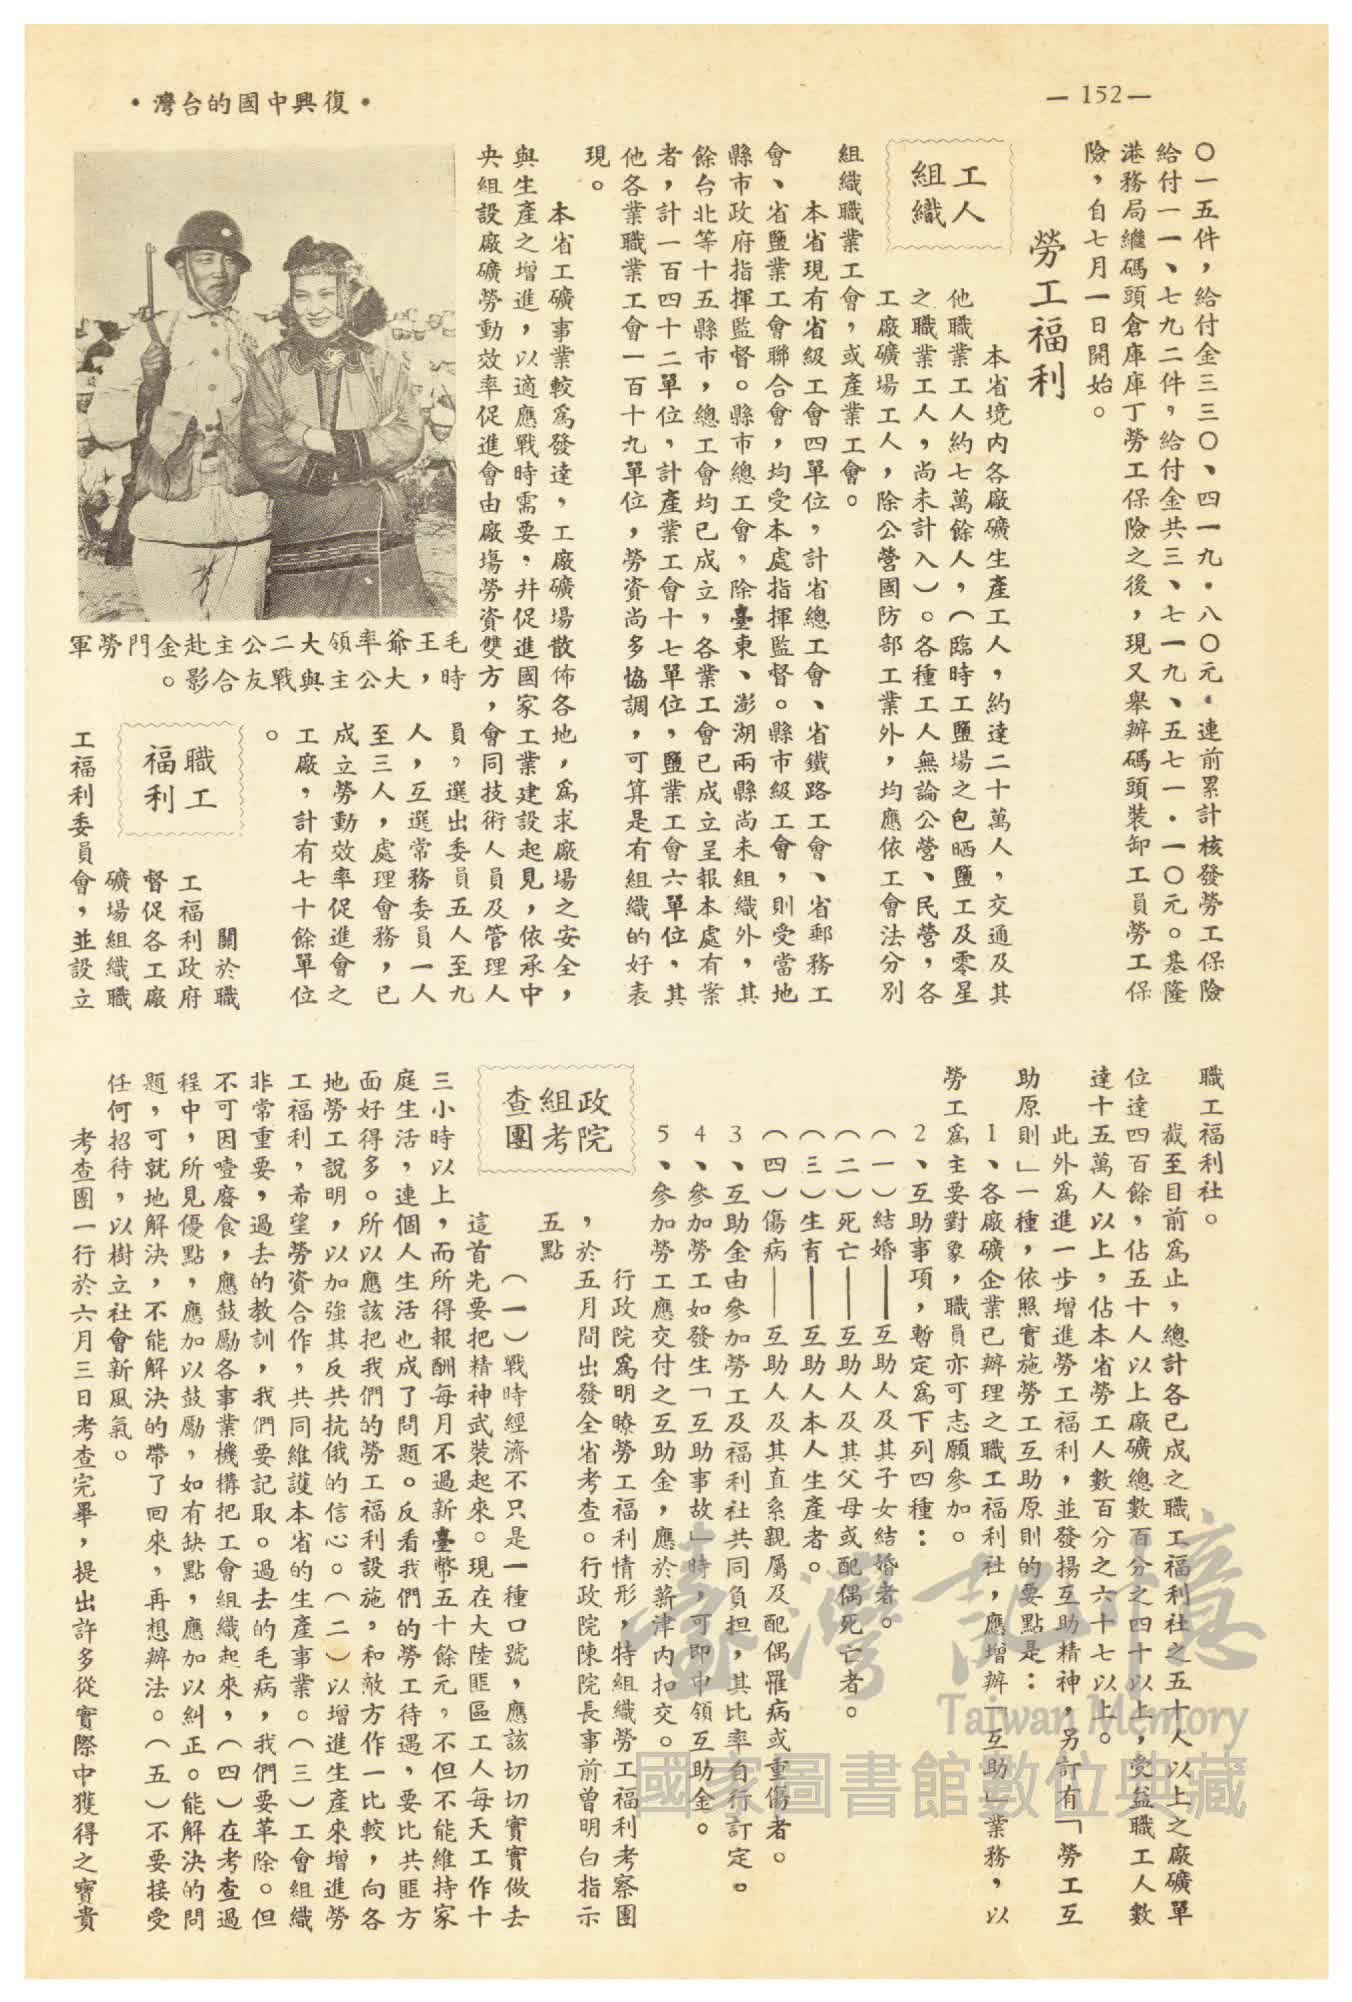 — 152 —
•復興中國的台灣•
〇一五件，給付金三三〇、四一九・八〇元。連前累計核發勞工保險
給付一一、七九二件，給付金共三、七一九、五七一・一〇元。基隆
港務局繼碼頭倉庫庫丁勞工保險之後，現又舉辦碼頭裝卸工員勞工保
險，自七月一日開始。
勞工福利
工人
組織
本省境內各廠礦生產工人，約達二十萬人，交通及其
他職業工人約七萬餘人，（臨時工鹽場之包晒鹽工及零星
之職業工人，尚未計入）。各種工人無論公營、民營，各
工廠礦場工人，除公營國防部工業外，均應依工會法分別
組織職業工會，或產業工會。
本省現有省級工會四單位，計省總工會、省鐵路工會、省郵務工
會、省鹽業工會聯合會，均受本處指揮監督。縣市級工會，則受當地
縣市政府指揮監督。縣市總工會，除臺東、澎湖兩縣尚未組織外，其
餘台北等十五縣市，總工會均已成立，各業工會已成立呈報本處有案
者，計一百四十二單位，計產業工會十七單位，鹽業工會六單位，其
他各業職業工會一百十九單位，勞資尚多協調，可算是有組織的好表
現。
本省工礦事業較爲發達，工廠礦場散佈各地，爲求廠場之安全，
與生產之增進，以適應戰時需要，幷促進國家工業建設起見，依承中
央組設廠礦勞動效率促進會由廠場勞資雙方，會同技術人員及管理人
員，選出委員五人至九
人，互選常務委員一人
至三人，處理會務，已
成立勞動效率促進會之
工廠，計有七十餘單位
。
毛王爺率領大二公主赴金門勞軍
時，大公主與戰友合影。
職工
福利
關於職
工福利政府
督促各工廠
礦場組織職
工福利委員會，並設立
職工福利社。
截至目前爲止，總計各已成之職工福利社之五十人以上之廠礦單
位達四百餘，佔五十人以上廠礦總數百分之四十以上，受益職工人數
達十五萬人以上，佔本省勞工人數百分之六十七以上。
此外爲進一步增進勞工福利，並發揚互助精神，另訂有「勞工互
助原則」一種，依照實施勞工互助原則的要點是：
1、各廠礦企業已辦理之職工福利社，應增辦「互助」業務，以
勞工爲主要對象，職員亦可志願參加。
2、互助事項，暫定爲下列四種：
（一）結婚——互助人及其子女結婚者。
（二）死亡——互助人及其父母或配偶死亡者。
（三）生育——互助人本人生產者。
（四）傷病——互助人及其直系親屬及配偶罹病或重傷者。
3、互助金由參加勞工及福利社共同負担，其比率自行訂定。
4、參加勞工如發生「互助事故」時，可即申領互助金。
5、參加勞工應交付之互助金，應於薪津內扣交。
政院
組考
查團
行政院爲明瞭勞工福利情形，特組織勞工福利考察團
，於五月間出發全省考查。行政院陳院長事前曾明白指示
五點
（一）戰時經濟不只是一種口號，應該切切實實做去
這首先要把精神武裝起來。現在大陸匪區工人每天工作十
三小時以上，而所得報酬每月不過新臺幣五十餘元，不但不能維持家
庭生活，連個人生活也成了問題。反看我們的勞工待遇，要比共匪方
面好得多。所以應該把我們的勞工福利設施，和敵方作一比較，向各
地勞工說明，以加強其反共抗俄的信心。（二）以增進生產來增進勞
工福利，希望勞資合作，共同維護本省的生產事業。（三）工會組織
非常重要，過去的教訓，我們要記取。過去的毛病，我們要革除。但
不可因噎廢食，應鼓勵各事業機構把工會組織起來，（四）在考查過
程中，所見優點，應加以鼓勵，如有缺點，應加以糾正。能解決的問
題，可就地解決，不能解決的帶了回來，再想辦法。（五）不要接受
任何招待，以樹立社會新風氣。
考查團一行於六月三日考查完畢，提出許多從實際中獲得之寶貴
臺灣記憶
Taiwan Memory
國家圖書館數位典藏